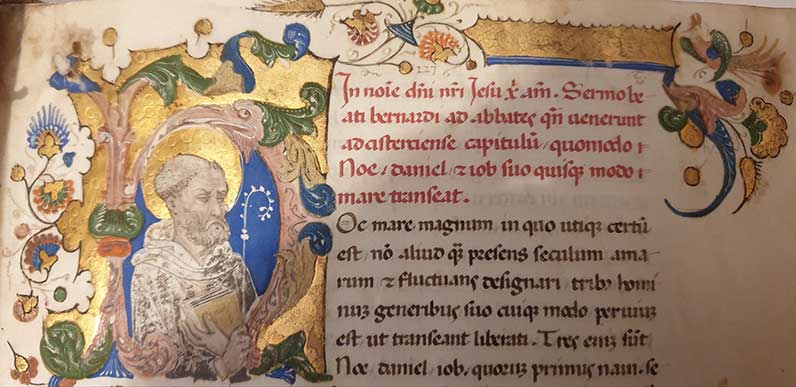 227
In noīe dn̄i nr̄i Jesu x̄ am̄. Sermo be-
ati bernardi ad abbates qn̄ uenerunt
ad cisterciense capitulū quomodo i
Noe, daniel, ⁊ iob suo quisqꝫ modo i
mare transeat.
oc mare magnum in quo utiqꝫ certū
est nō aliud qꝫ presens seculum ama
rum ⁊ fluctuans designari trib⁹ homi
nuꝫ generibus suo cuiqꝫ modo peruiuꝫ
est ut transeant liberati. Tres eniꝫ sūt
Noe, daniel, iob. quoruꝫ primus naui. se